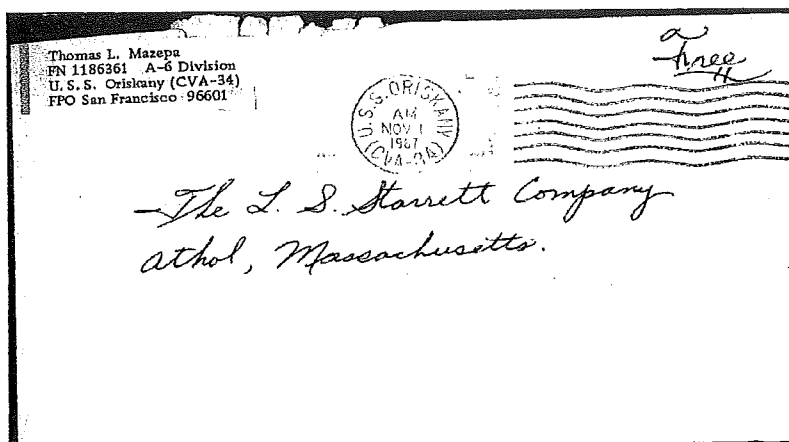 Thomas L. Mazepa
FN 1186361 A-6 Division
U.S.S. Oriskany (CVA-34)
FPO San Francisco 96601
a
Free
U.S.S. ORISKANY
AM
NOV 1
1967
(CVA-34)
The L. S. Starrett Company
Athol, Massachusetts.